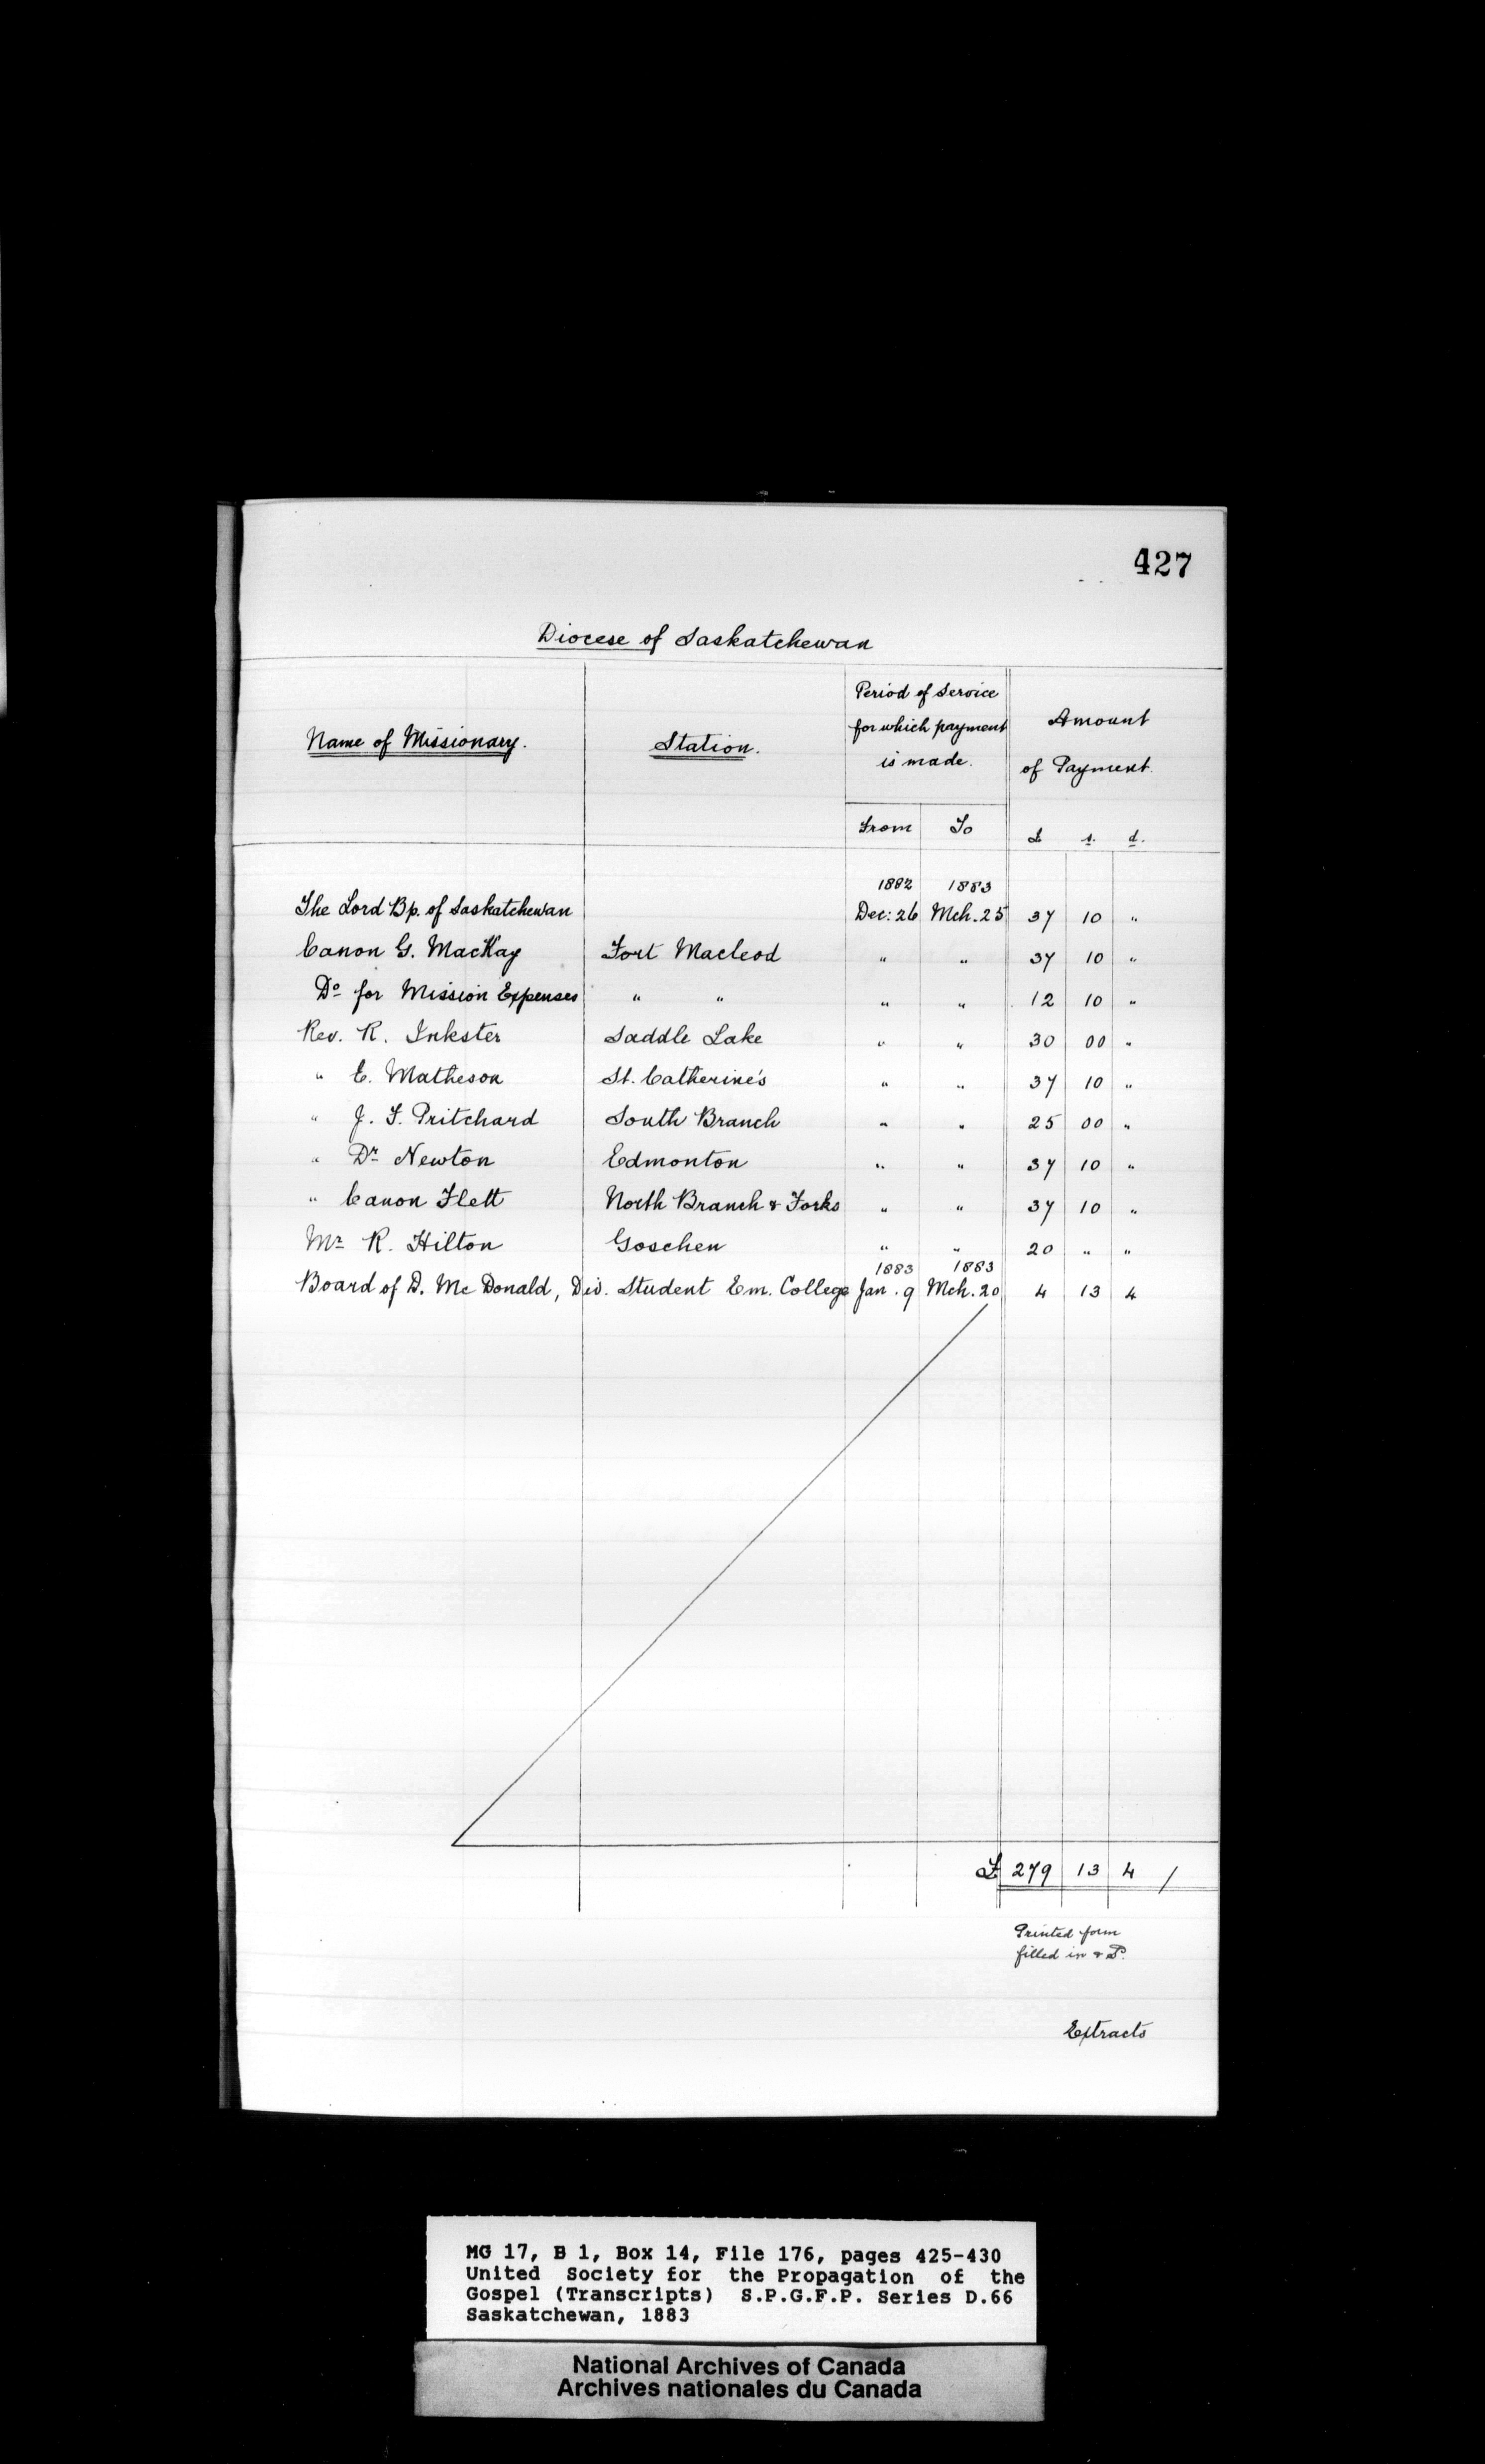 427
Diocese of Saskatchewan
Name of Missionary. Station. Period of Service for which payment is made. Amount of Payment.
From To £ s. d.
1882 1883
The Lord Bp. of Saskatchewan Dec: 26 Mch. 25 37 10 "
Canon G. MacKay Fort Macleod " " 37 10 "
Do for Mission Expenses " " " " 12 10 "
Rev. R. Inkster Saddle Lake " " 30 00 "
" E. Matheson St. Catherine's " " 37 10 "
" J. F. Pritchard South Branch " " 25 00 "
" Dr Newton Edmonton " " 37 10 "
" Canon Flett North Branch & Forks " " 37 10 "
Mr R. Hilton Goschen " " 20 " "
1883 1883
Board of D. Mc Donald, Div. Student Em. College Jan. 9 Mch. 20 4 13 4
£ 279 13 4 /
Printed form
filled in & P.
Extracts
MG 17, B 1, Box 14, File 176, pages 425-430
United Society for the Propagation of the
Gospel (Transcripts) S.P.G.F.P. Series D.66
Saskatchewan, 1883
National Archives of Canada
Archives nationales du Canada